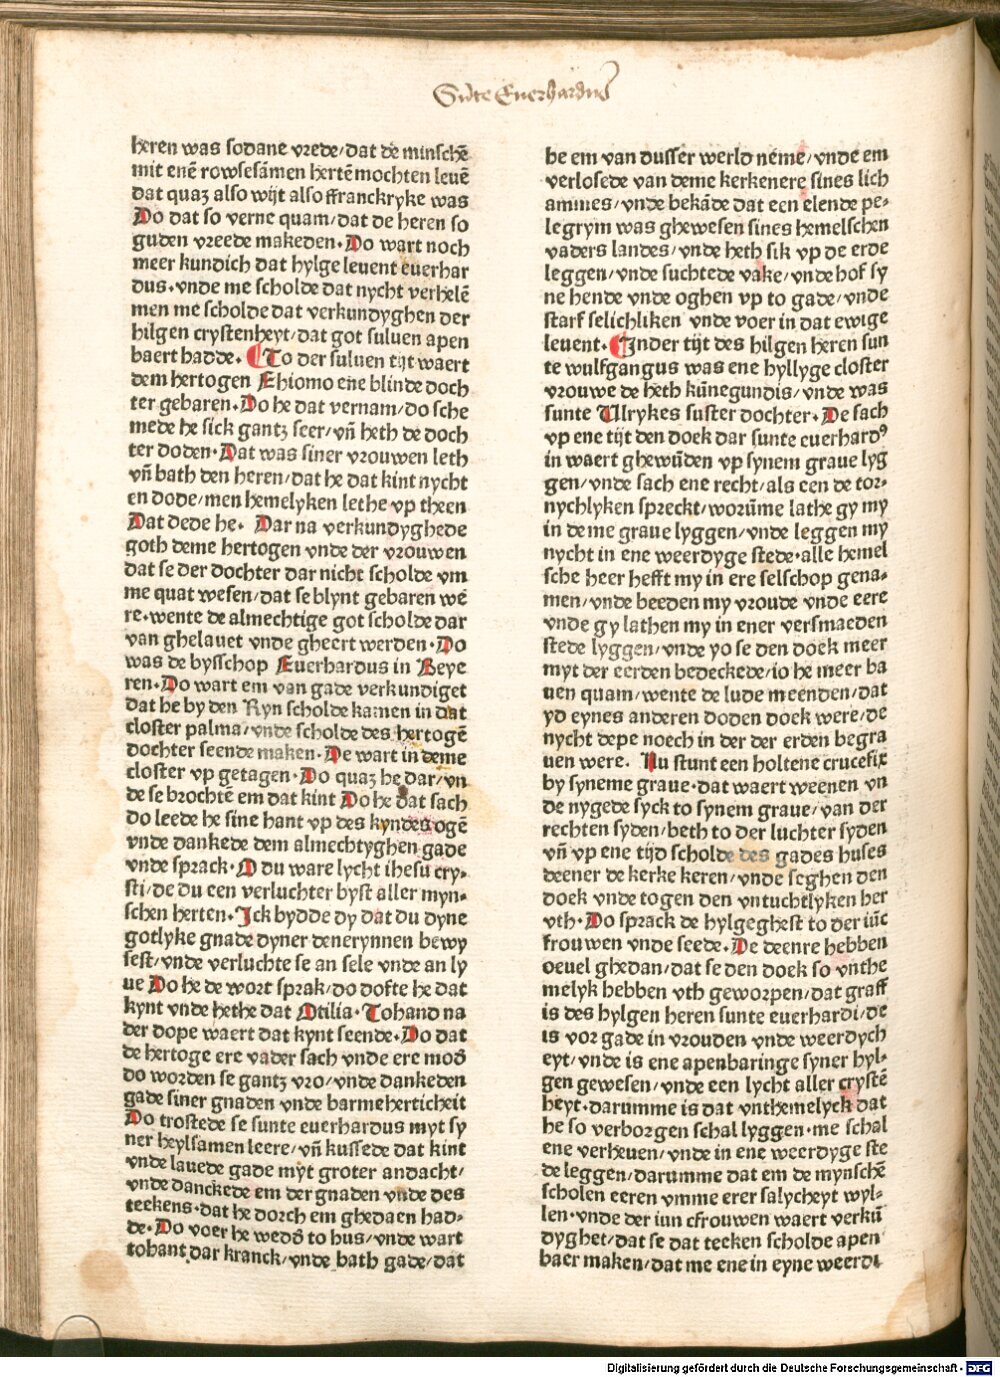 Sūte Euerhardus
heren was sodane vrede/dat de minschē
mit enē rowsesāmen hertē mochten leuē
dat quaz also wijt also ffranckryke was
Do dat so verne quam/dat de heren so
guden vreede makeden. Do wart noch
meer kundich dat hylge leuent euerhar
dus. vnde me scholde dat nycht verhelē
men me scholde dat verkundyghen der
hilgen crystenheyt/dat got suluen apen
baert hadde. To der suluen tijt waert
dem hertogen Ehiomo ene blinde doch
ter gebaren. Do he dat vernam/do sche
mede he sick gantz seer/vñ heth de doch
ter doden. Dat was siner vrouwen leth
vñ bath den heren/dat he dat kint nycht
en dode/men hemelyken lethe vp theen
Dat dede he. Dar na verkundyghede
goth deme hertogen vnde der vrouwen
dat se der dochter dar nicht scholde vm
me quat wesen/dat se blynt gebaren wē
re. wente de almechtige got scholde dar
van ghelauet vnde gheert werden. Do
was de bysschop Euerhardus in Beye
ren. Do wart em van gade verkundiget
dat he by den Ryn scholde kamen in dat
closter palma/vnde scholde des hertogē
dochter seende maken. De wart in deme
closter vp getagen. Do quaz he dar/vn
de se brochtē em dat kint Do he dat sach
do leede he sine hant vp des kyndes ogē
vnde dankede dem almechtyghen gade
vnde sprack. O du ware lycht ihesu cry-
sti/de du een verluchter byst aller myn-
schen herten. Ick bydde dy dat du dyne
gotlyke gnade dyner denerynnen bewy
sest/vnde verluchte se an sele vnde an ly
ue Do he de wort sprak/do dofte he dat
kynt vnde hethe dat Otilia. Tohand na
der dope waert dat kynt seende. Do dat
de hertoge ere vader sach vnde ere mod̄
do worden se gantz vro/vnde dankeden
gade siner gnaden vnde barmeherticheit
Do trostede se sunte euerhardus myt sy
ner heylsamen leere/vñ kussede dat kint
vnde lauede gade myt groter andacht/
vnde danckede em der gnaden vnde des
teekens. dat he dorch em ghedaen had-
de. Do voer he wed̄ to hus/vnde wart
tohant dar kranck/vnde bath gade/dat
he em van dusser werld nēme/vnde em
verlosede van deme kerkenere sines lich
ammes/vnde bekāde dat een elende pe-
legrym was ghewesen sines hemelschen
vaders landes/vnde heth sik vp de erde
leggen/vnde suchtede vake/vnde hof sy
ne hende vnde oghen vp to gade/vnde
starf selichliken vnde voer in dat ewige
leuent. In der tijt des hilgen heren sun
te wulfgangus was ene hyllyge closter
vrouwe de heth kūnegundis/vnde was
sunte Ulrykes suster dochter. De sach
vp ene tijt den doek dar sunte euerhardꝰ
in waert ghewūden vp synem graue lyg
gen/vnde sach ene recht/als een de tor-
nychlyken spreckt/worūme lathe gy my
in deme graue lyggen/vnde leggen my
nycht in ene weerdyge stede. alle hemel
sche heer hefft my in ere selschop gena-
men/vnde beeden my vroude vnde eere
vnde gy lathen my in ener versmaeden
stede lyggen/vnde yo se den doek meer
myt der eerden bedeckede/io he meer ba
uen quam/wente de lude meenden/dat
yd eynes anderen doden doek were/de
nycht depe noech in der der erden begra
uen were. Nu stunt een holtene crucefix
by syneme graue. dat waert weenen vn
de nygede syck to synem graue/van der
rechten syden/beth to der luchter syden
vñ vp ene tijd scholde des gades huses
deener de kerke keren/vnde seghen den
doek vnde togen den vntuchtlyken her
vth. Do sprack de hylgeghest to der iūc
frouwen vnde seede. De deenre hebben
oeuel ghedan/dat se den doek so vnthe
melyk hebben vth geworpen/dat graff
is des hylgen heren sunte euerhardi/de
is vor gade in vrouden vnde weerdych
eyt/vnde is ene apenbaringe syner hyl-
gen gewesen/vnde een lycht aller crystē
heyt. darumme is dat vnthemelyck dat
he so verborgen schal lyggen. me schal
ene verheuen/vnde in ene weerdyge ste
de leggen/darumme dat em de mynschē
scholen eeren vmme erer salycheyt wyl-
len. vnde der iun cfrouwen waert verkū
dyghet/dat se dat teeken scholde apen
baer maken/dat me ene in eyne weerdi
Digitalisierung gefördert durch die Deutsche Forschungsgemeinschaft - DFG